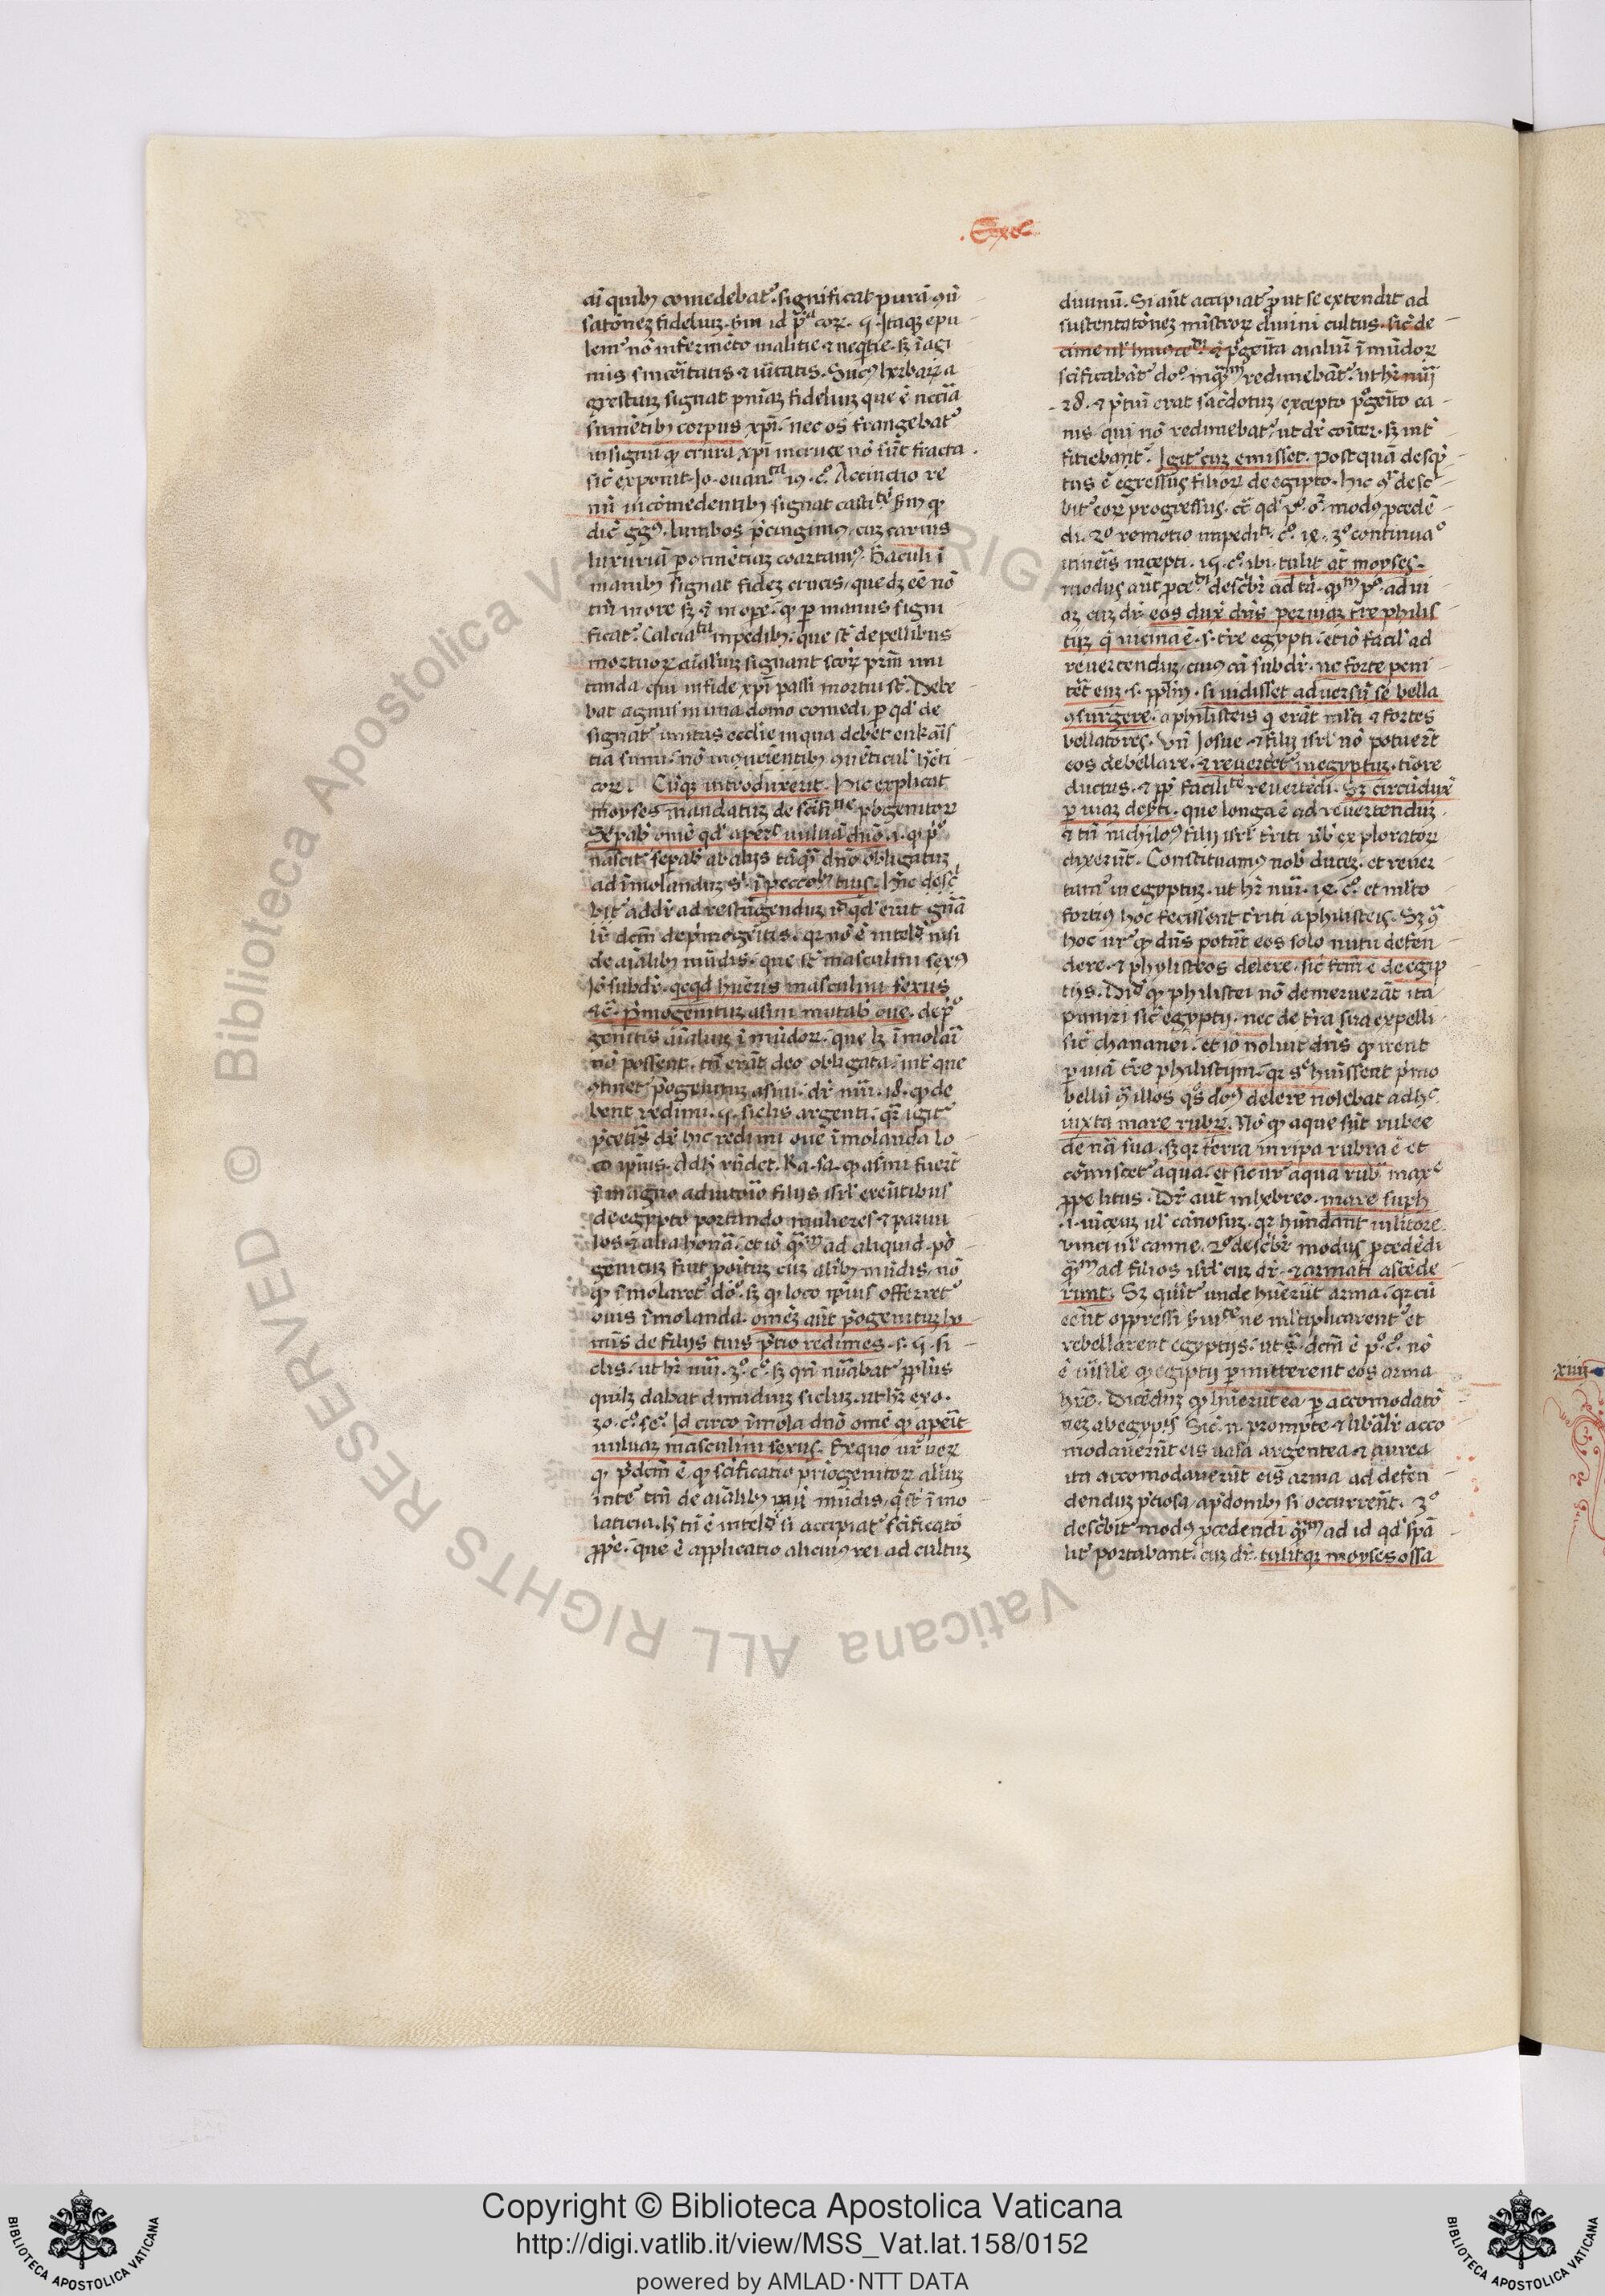 .Exoꝺ
aī quibꝫ comedebat᷑. significat purā ꝯu̅
satōneꝫ fideliuꝫ. ẜm id pͣ cor̄. 5. Itaqꝫ epu
lem᷑ nō in fermēto malitie ⁊ neqͥtie. sꝫ ī aꝫi
mis sincēritatis ⁊ uītatis. Sucꝰ herbarꝫ a
grestiuꝫ signat pnīaꝫ fideliuꝫ que ē neccīa
sumētibꝫ corpus xpī. nec os frangebat᷑
in signū qꝫ crura xpī in cruce nō sūt fracta.
sic̄ exponit. Jo. euan.ta 19. c̊. Accinctio re
nū in comedentibꝫ signat castitatē. ẜm qꝫ
dic̄ ggͦ. lumbos p̄cingimꝰ. cuꝫ carnis
luxuriā ꝑ ꝯtinētiaꝫ coartamꝰ. Baculi ī
manibꝫ signat fideꝫ crucis. que dꝫ eē nō
tm̄ in ore sꝫ ⁊ in oꝑe. qꝫ ꝑ manus signi
ficat᷑. Calciata in pedibꝫ. que st̄ de pellibus
mortuorꝫ aīaliuꝫ signant scōrꝫ pr̄m imi
tanda. qui in fide xpī passi mortui st̄. Debe
bat agnus in una domo comedi. ꝑ qd᷑ de
signat᷑ unitas ecclīe in qua debet eukaīs
tia sumi. nō in ꝯuēientibꝫ ꝯuēticulis hēti
corꝫ. Cūqꝫ introduxerit. Hic explicat
moyses mandatuꝫ de scīfitōe pͥogenitorꝫ
Sepabis omē qd᷑ aperit uuluā dnō .i. qͥ pͥo
nascit᷑. sepabis ab aliis tāqꝫ dnō obligatuꝫ
ad īmolanduꝫ si. ī peccoribꝫ tuis. Hic desc̄
bit᷑ addr̄ ad restrīgenduꝫ id qd᷑ erat gn̄a
lr̄ dcm̄ de pͥmogēitis. qꝛ nō ē intelḋ nisi
de aīalibꝫ mūdis. que st̄ masculini sexꝰ
Iō subdr̄. qͥcqͥd hūeris masculini sexus
⁊c̄. pͥmogenituꝫ asini mutabis oue. de pͥo
genitis aīaliuꝫ īmūdorꝫ. que lꝫ īmolari
nō possent. tn̄ erāt deo obligata. int᷑ que
ꝯtinet᷑. pͥogenituꝫ asini. dr̄ nuī. 18. qꝫ de
bent redimi. 5. siclis argenti. qꝛ igit᷑
pͥcetis dr̄ hic redimi oue īmolanda lo
co ipīus. Ad hꝫ rn̄det. Ra. sa. qꝫ asini fuerūt
ī magno adiutorio filiis isrl̄ exeūtibus
de egypto portando mulieres ⁊ paruu
los ⁊ alia bona. et iō qͣꝫm ad aliquid. pͥo
genituꝫ fuit poītuꝫ cuꝫ alibꝫ mūdis. nō
qꝫ īmolaret᷑ dō. sꝫ qꝫ loco ipīus offerret᷑
ouis īmolanda. omēꝫ aūt pͥogenituꝫ ho
minis de filiis tuis p̄tio redimes. s. 5. si
clis. ut hr̄ nuī. 3̊. c̊. sꝫ qn̄ nūabat᷑ ppl̄us
quilꝫ dabat dimidiuꝫ sicluꝫ. ut hr̄ exo.
30. c̊. Id circo īmolo dnō omē qꝫ aperit
uuluaꝫ masculini sexus. Ex quo ur̄ uerꝫ
qꝫ pͥdcm̄ ē. qꝫ scīficatio pͥiogenitorꝫ aliuꝫ
intelligit᷑ tm̄ de aīalibꝫ mūdis. qͥ st̄ īmo
laticia. hꝫ tn̄ ē intelḋ si accipiat᷑ scīficatō
ꝓpe. que ē applicatio alicuiꝰ rei ad cultuꝫ
diuinū. Si aūt accipiat᷑ ꝓut se extendit ad
sustentatōneꝫ mīstrorꝫ diuini cultus. sic̄ de
cime ul᷑ huiꝰce ⁊ pͥogēita aīaliuꝫ īmūdorꝫ
scīficabāt᷑ dō. inqͣꝫm redimebāt᷑. ut hr̄ nuī
18. ⁊ p̄tiū erat sac̄dotuꝫ. excepto pͥogēito ca
nis. qui nō redimebat᷑. ut dr̄ cōīter. sꝫ int᷑
ficiebant᷑. Igit᷑ cuꝫ emisset. Postquā descp̄
tus ē egressus filiorꝫ de egipto. hic ꝯͥ desc̄
bit᷑ eorꝫ progressus. c̄ qd᷑ pͦ. oͬ. modus ꝓcedē
di. 2̊ remotio impedīti. c̊. 14. 3̊ continuaͦ
itineris incepti. 15. c̊. ibi. tulit at̄ moyses.
modus aūt ꝓcedēdi desc̄bit᷑ ad tā. qͣꝫm pͦ. ad ui
aꝫ cuꝫ dr̄. eos dux dn̄s per uiaꝫ tr̄e philis
tijꝫ qͥ uicina ē. s. tr̄e egypti. et iō facilis ad
reuertenduꝫ. cuiꝰ cā subdr̄. ne forte peni
tēt euꝫ. s. ppl̄m. si uidisset aduersū se bella
ꝯsurgere. a philisteis qͥ erāt ml̄ti ⁊ fortes
bellatores. Vn̄ Josue. ⁊ filij isrl̄ nō potuerūt
eos debellare. ⁊ reuertet᷑ in egyptuꝫ. tiōre
ductus. ⁊ ꝓpter facilitatē reuertēdi. Sꝫ circūduxit
ꝑ uiaꝫ dēsti. que longa ē ad reuertenduꝫ.
⁊ tn̄ nichilōꝰ filij isrl̄ tr̄iti ūbis exploratorꝫ
dixerūt. Constituamꝰ nob̄ duceꝫ. et reuer
tam᷑ in egyptuꝫ. ut hr̄ nuī. 14. c̊. et ml̄to
fortiꝰ hoc fecissent tr̄iti a philisteis. Sꝫ ꝯͣ
hoc ur̄ qꝫ dn̄s potūt eos solo nutu defen
dere. ⁊ phylisteos delere. sic̄ fcm̄ ē de egip
tiis. Diḋ qꝫ philistei nō demeruerāt ita
puniri sic̄ egyptij. nec de tr̄a sua expelli
sic̄ chananei. et iō noluit dn̄s qꝫ irent
ꝑ uiā tr̄e philistijm. qꝛ sic̄ huīssent pͥmo
bellū ꝯͣ illos qͦs dōꝰ delere nolebat adhuc
iuxta mare rubrꝫ. Nō qꝫ aque sūt rubee
de nā sua. sꝫ qꝛ terra in ripa rubra ē et
cōmiscet᷑ aqua. et sic ur̄ aqua rubea maxe
ꝓpe litus. Dr̄ aūt in hebreo. mare suph
.i. uīceuꝫ ul᷑ cānosuꝫ. qꝛ hūndant in litore
uinci ul᷑ canne. 2̊ desc̄bit᷑ modus ꝓcedēdi
qͣꝫm ad filios isrl̄ cuꝫ dr̄. ⁊ armati ascēde
runt. Sꝫ querit᷑ unde huērūt arma. qꝛ cū
eēnt oppressi ẜuitute ne ml̄tiplicarent᷑ et
rebellarent egyptijs. ut sͣ. dcm̄ ē pͦ. c̊. nō
ē uīsile qꝫ egiptij ꝑmitterent eos arma
hr̄e. Dicēduꝫ qꝫ huērūt ea. ꝑ accomodatō
neꝫ ab egyptijs. Sic̄. n. prompte ⁊ libālr̄ acco
modauerūt eis uasa argentea ⁊ aurea
ita accomodauerūt eis arma ad defen
denduꝫ pͥciosa. a pͥdonibꝫ si occurrerēt. 3̊
desc̄bit᷑ modꝰ ꝓcedendi qͣꝫm ad id qd᷑ spā
lit᷑ portabant. cuꝫ dr̄. tulitqꝫ moyses ossa
xiiij
Copyright © Biblioteca Apostolica Vaticana
http://digi.vatlib.it/view/MSS_Vat.lat.158/0152
powered by AMLAD·NTT DATA
BIBLIOTECA APOSTOLICA VATICANA
BIBLIOTECA APOSTOLICA VATICANA
© Biblioteca Apostolica Vaticana ALL RIGHTS RESERVED